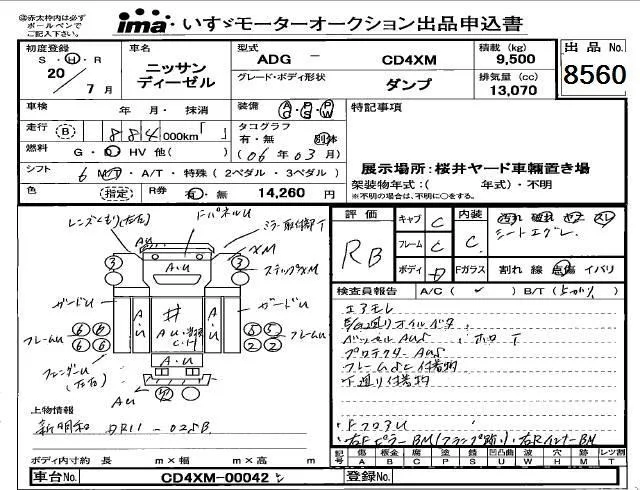 ※赤太枠内は必ず
ボールペンで
ご記入下さい。
ima いすゞモーターオークション出品申込書
初度登録 S・H・R 20 / 7 月
車名 ニッサン ディーゼル
型式 ADG － CD4XM
積載 (kg) 9,500
出品No. 8560
グレード・ボディ形状 ダンプ
排気量 (cc) 13,070
車検 年 月・抹消
装備 AC・PS・PW
特記事項
走行 (B) 884,000km「 」
タコグラフ 有・無 別体
(06 年 03 月)
燃料 G・D HV 他( )
シフト 6 MT・A/T・特殊 (2ペダル・3ペダル)
展示場所：桜井ヤード車輛置き場
架装物年式：( 年式)・不明
※不明の場合は、不明に○をする。
色 (指定) R券 有・無 14,260 円
レンズくもり(左右)
ドパネルU
ミラー取付部T
AU
XM
3 A・U 3
ステップXM
ガードU
A・U
井
AU
A・U
ガードU
フレームU
6 6
6 6
5 5
2 2
フレームU
A・U
フェンダーU
(左右)
AU
上物情報
新明和 DR11-025B
ボディ内寸約 長 m×幅 m×高 m
評価 RB
キャブ C
内装 C
汚れ 破れ コゲ スレ
シートエグレ
フレーム C
ボディ D
Fガラス 割れ 線 点傷 イバリ
検査員報告 A/C( ✓ ) B/T( )
エアモレ
下廻りオイル
ベッセルAUS ホロ T
プロテクターAUS
フレームSC付着物
下廻り付着物
FフロアU
右FピラーBM(フランプ跡)、右RインナーBM
記号 傷 A 板金 B 腐 C 塗 P 錆 S 凹凸曲 U 波 W 穴 H 跡 M レツ割 T
車台No. CD4XM-00042
登録No.